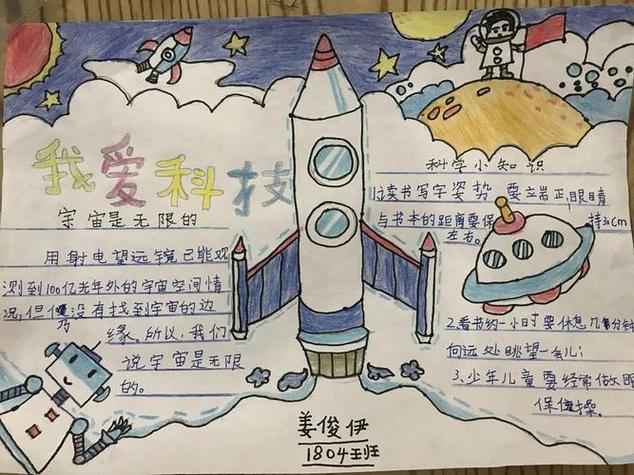 我爱科技
宇宙是无限的
用射电望远镜已能观
测到100亿光年外的宇宙空间情
况，但仍没有找到宇宙的边
缘。所以，我们
说宇宙是无限
的。
科学小知识
读书写字姿势要立岩正，眼睛
与书本的距离要保持30cm
左右。
2.看书约一小时要休息几分钟
向远处眺望一会儿；
3.少年儿童要经常做眼
保健操。
姜俊伊
1804班